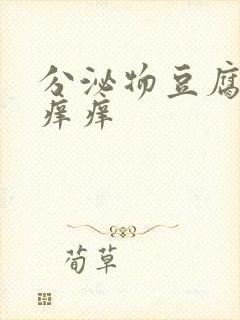 分泌物豆腐
痒痒
荀草